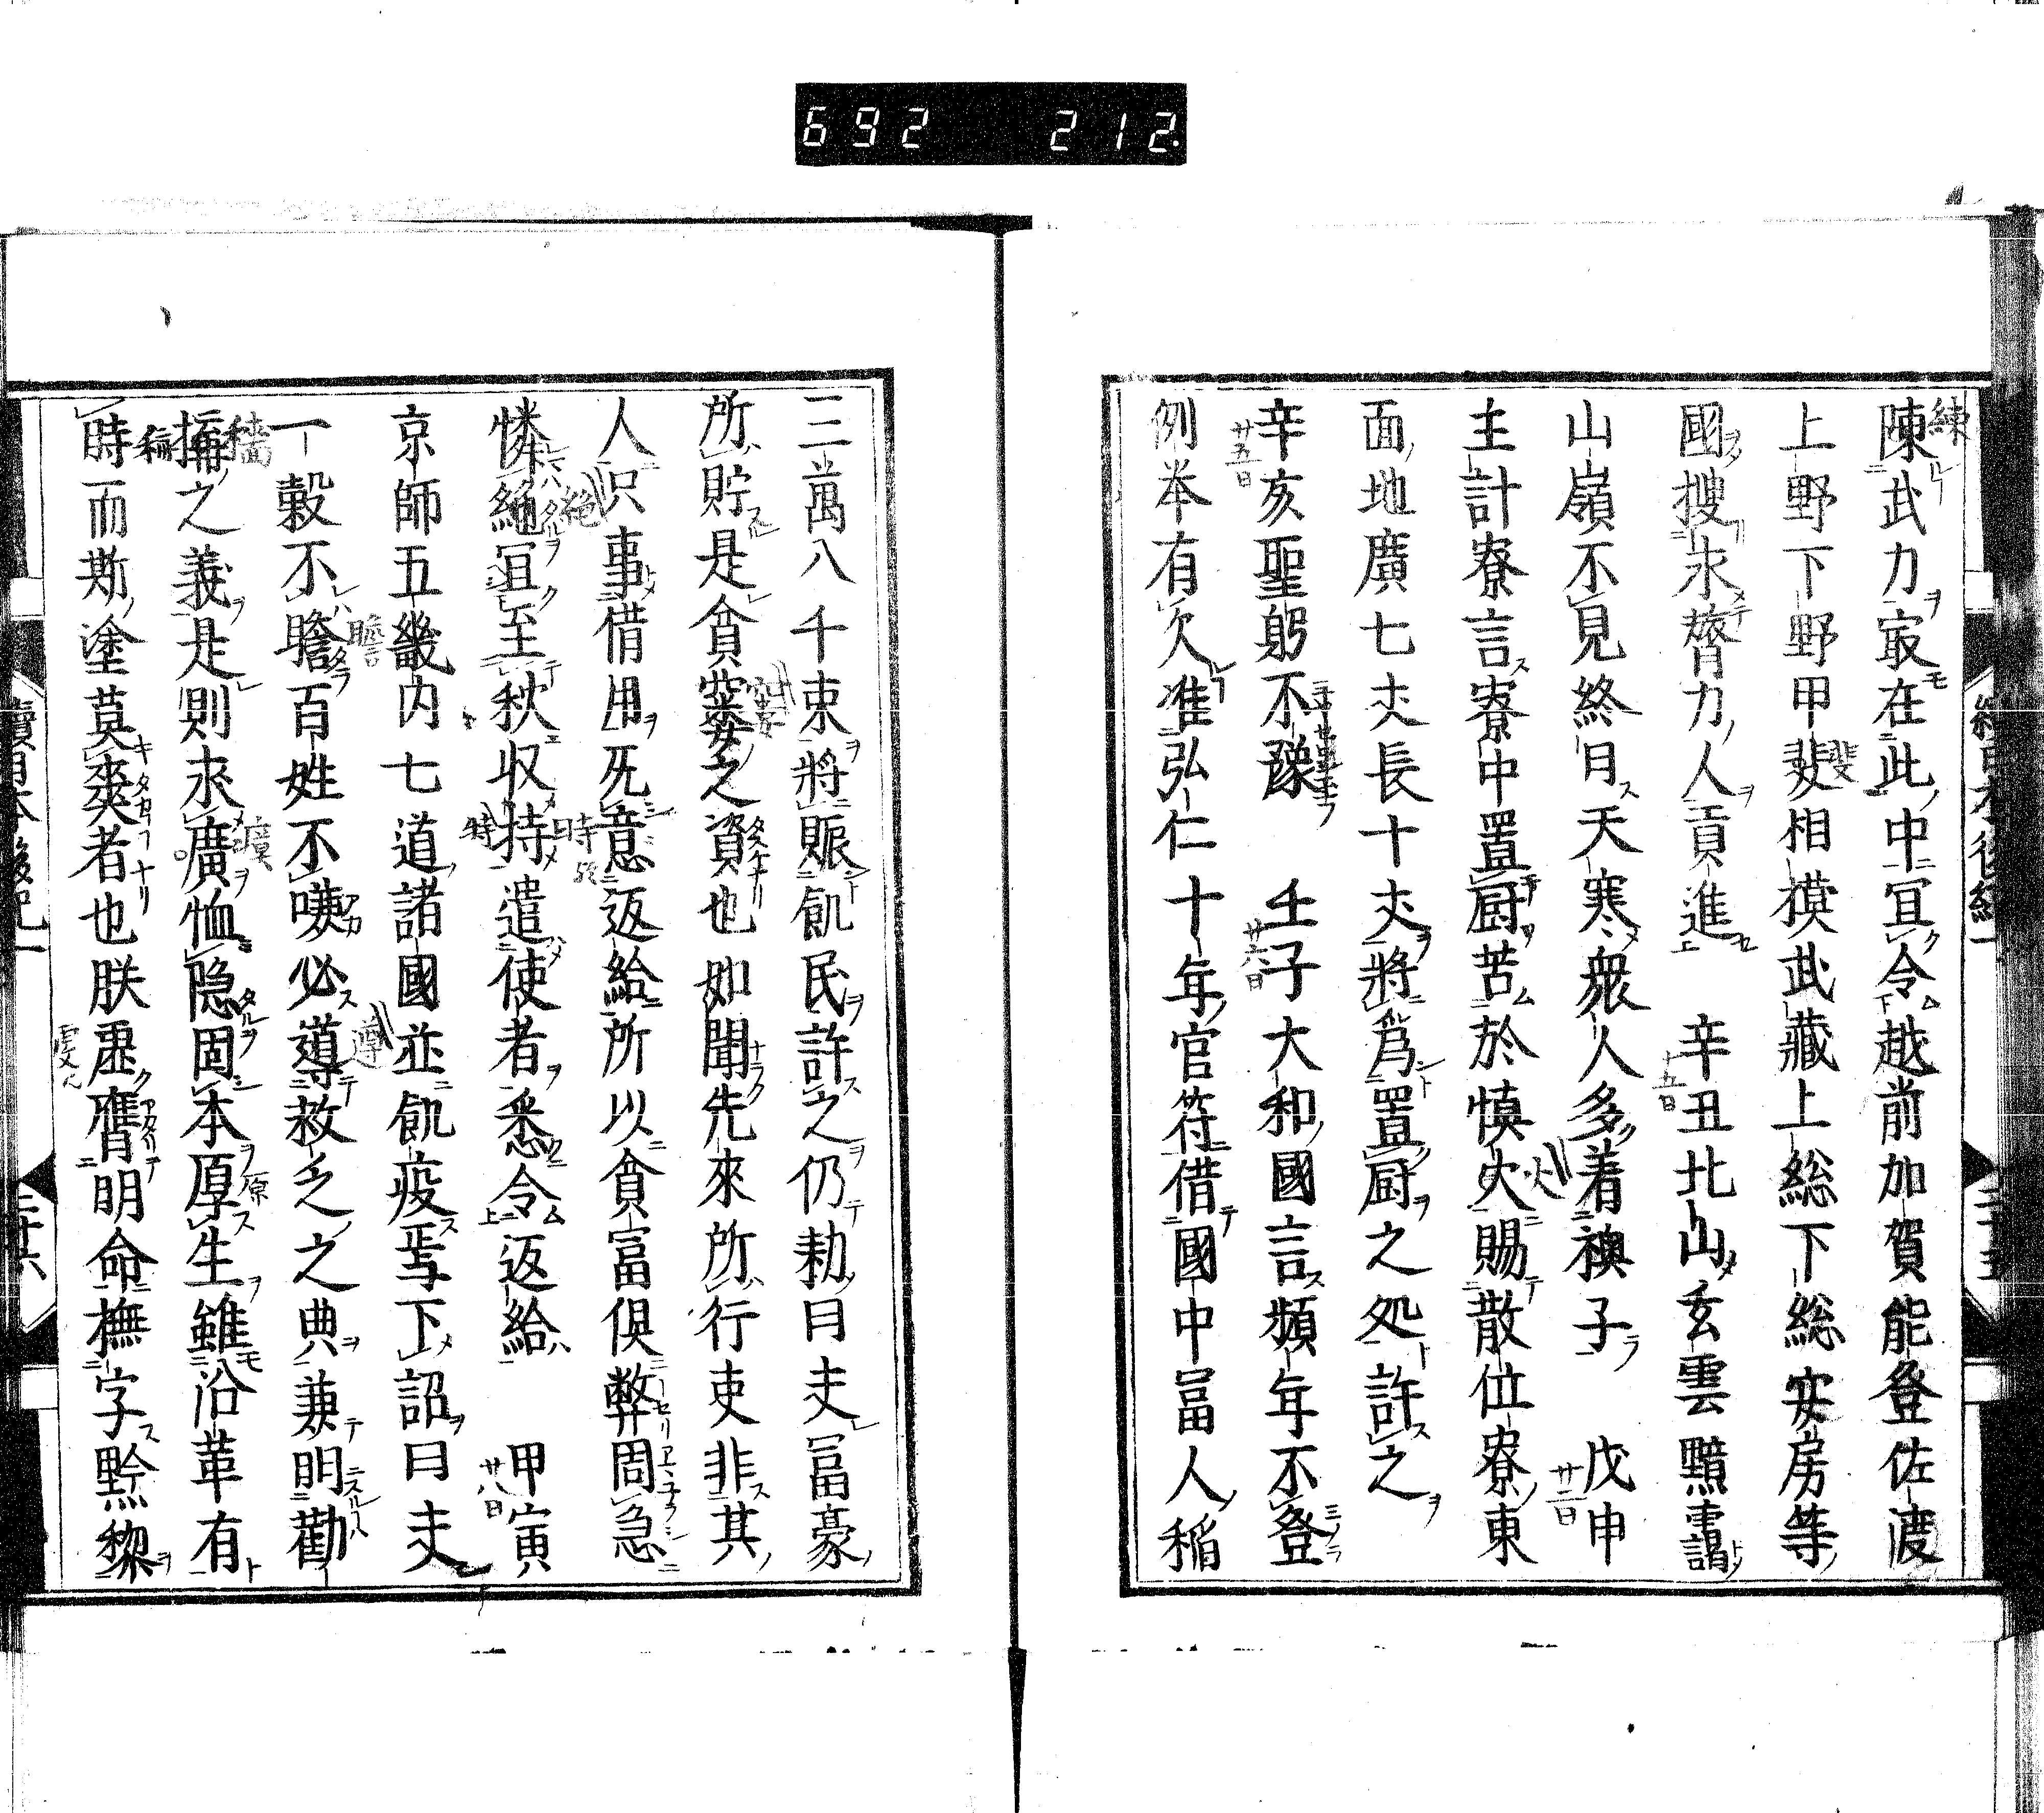 692 212.
陳武力㝡在此中冝令越前加賀能登佐渡
上野下野甲斐相摸武藏上総下総安房等
國搜求膂力人貢進 辛丑北山玄雲黯靄
山嶺不見終日天寒衆人多着襖子 戊申
主計寮言寮中置厨苦於慎火賜散位寮東
面地廣七丈長十丈將爲置厨之処許之
辛亥聖躬不豫 壬子大和國言頻年不登
例本有欠准弘仁十年官符借國中冨人稲
三萬八千束將賑飢民許之仍勅曰夫冨豪
所貯是貧窶之資也如聞先來所行吏非其
人只事借用旡意返給所以貧富俱弊周急
憐絶冝至秋収持遣使者悉令返給 甲寅
京師五畿内七道諸國並飢疫焉下詔曰夫
一穀不瞻百姓不嗛必導救乏之典兼明勸
之義是則求廣恤隐固本厚生雖沿革有
時而斯塗莫爽者也朕虚膺明命撫字黔黎